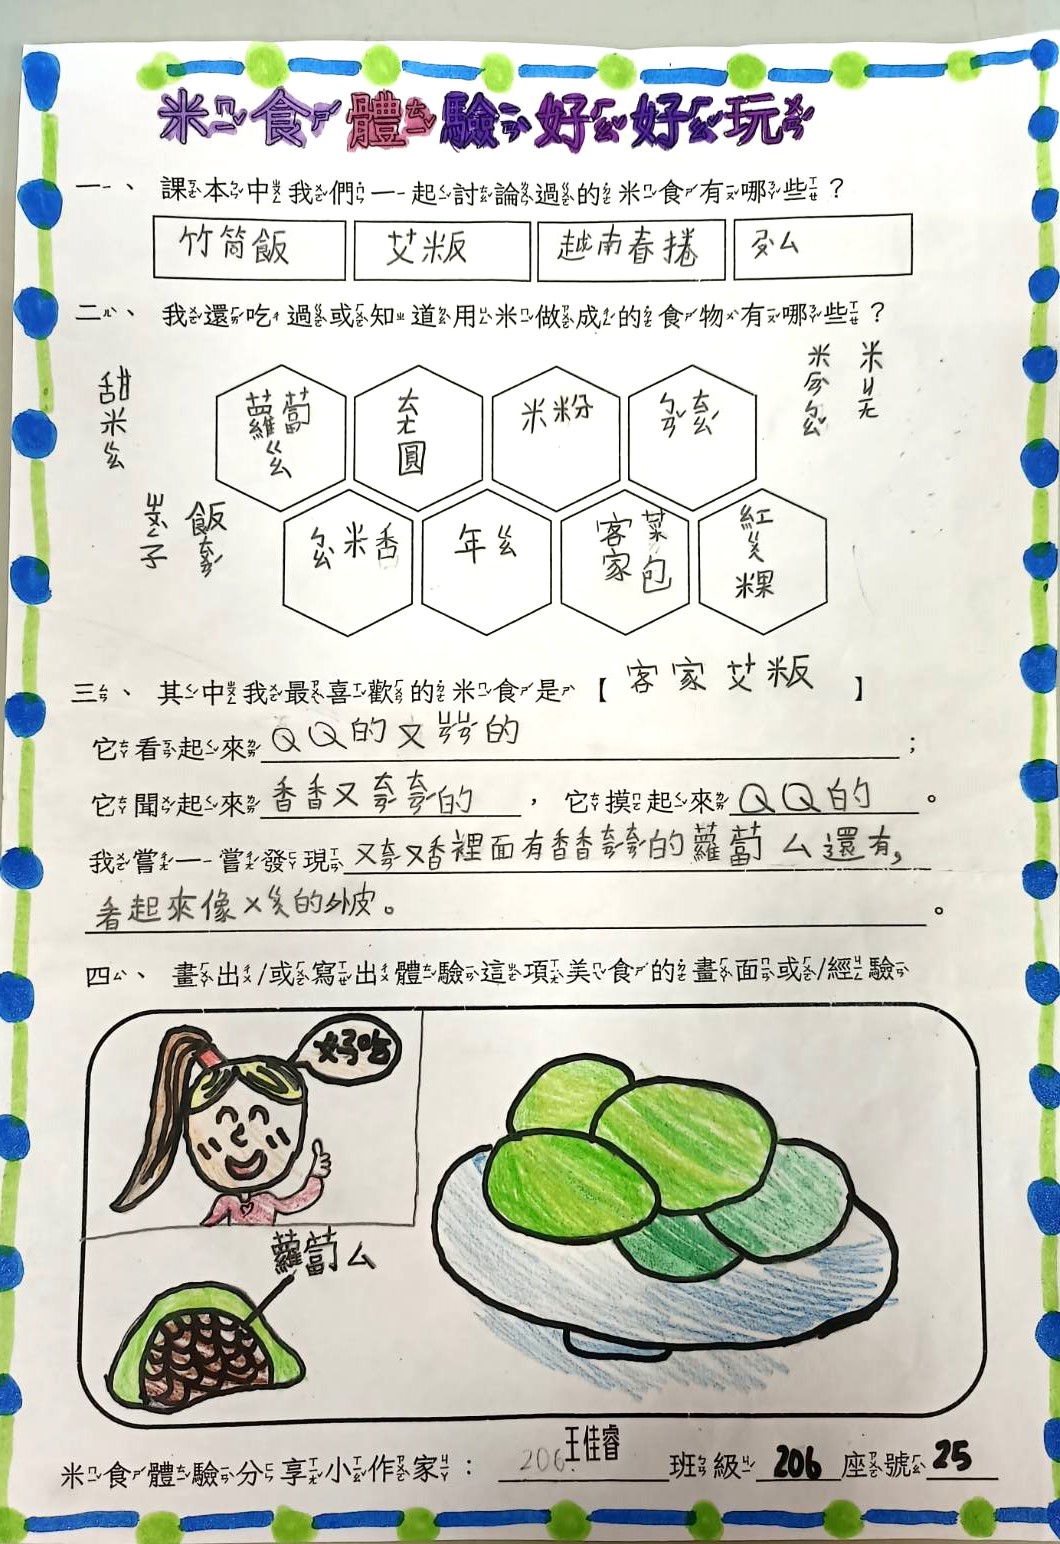 米食體驗好好玩
一、課本中我們一起討論過的米食有哪些？
竹筒飯 艾粄 越南春捲
二、我還吃過或知道用米做成的食物有哪些？
甜米ㄍㄠ
蘿蔔ㄍㄠ ㄊㄤ圓 米粉
米ㄊㄞˊㄇㄨˋ
ㄇㄚˊ米香 年ㄍㄠ 客家菜包 紅ㄍㄨㄟ粿
三、其中我最喜歡的米食是【客家艾粄】
它看起來QQ的又ㄓㄡˋㄓㄡˋ的；
它聞起來香香又ㄊㄧㄢˊㄊㄧㄢˊ的，它摸起來QQ的。
我嘗一嘗發現又ㄊㄧㄢˊ又香裡面有香香ㄊㄧㄢˊㄊㄧㄢˊ的蘿蔔ㄙ還有，
看起來像ㄨㄍㄨㄟ的外皮。。
四、畫出/或寫出體驗這項美食的畫面或/經驗
好吃
蘿蔔ㄙ
米食體驗分享小作家：206王佳睿 班級206座號25